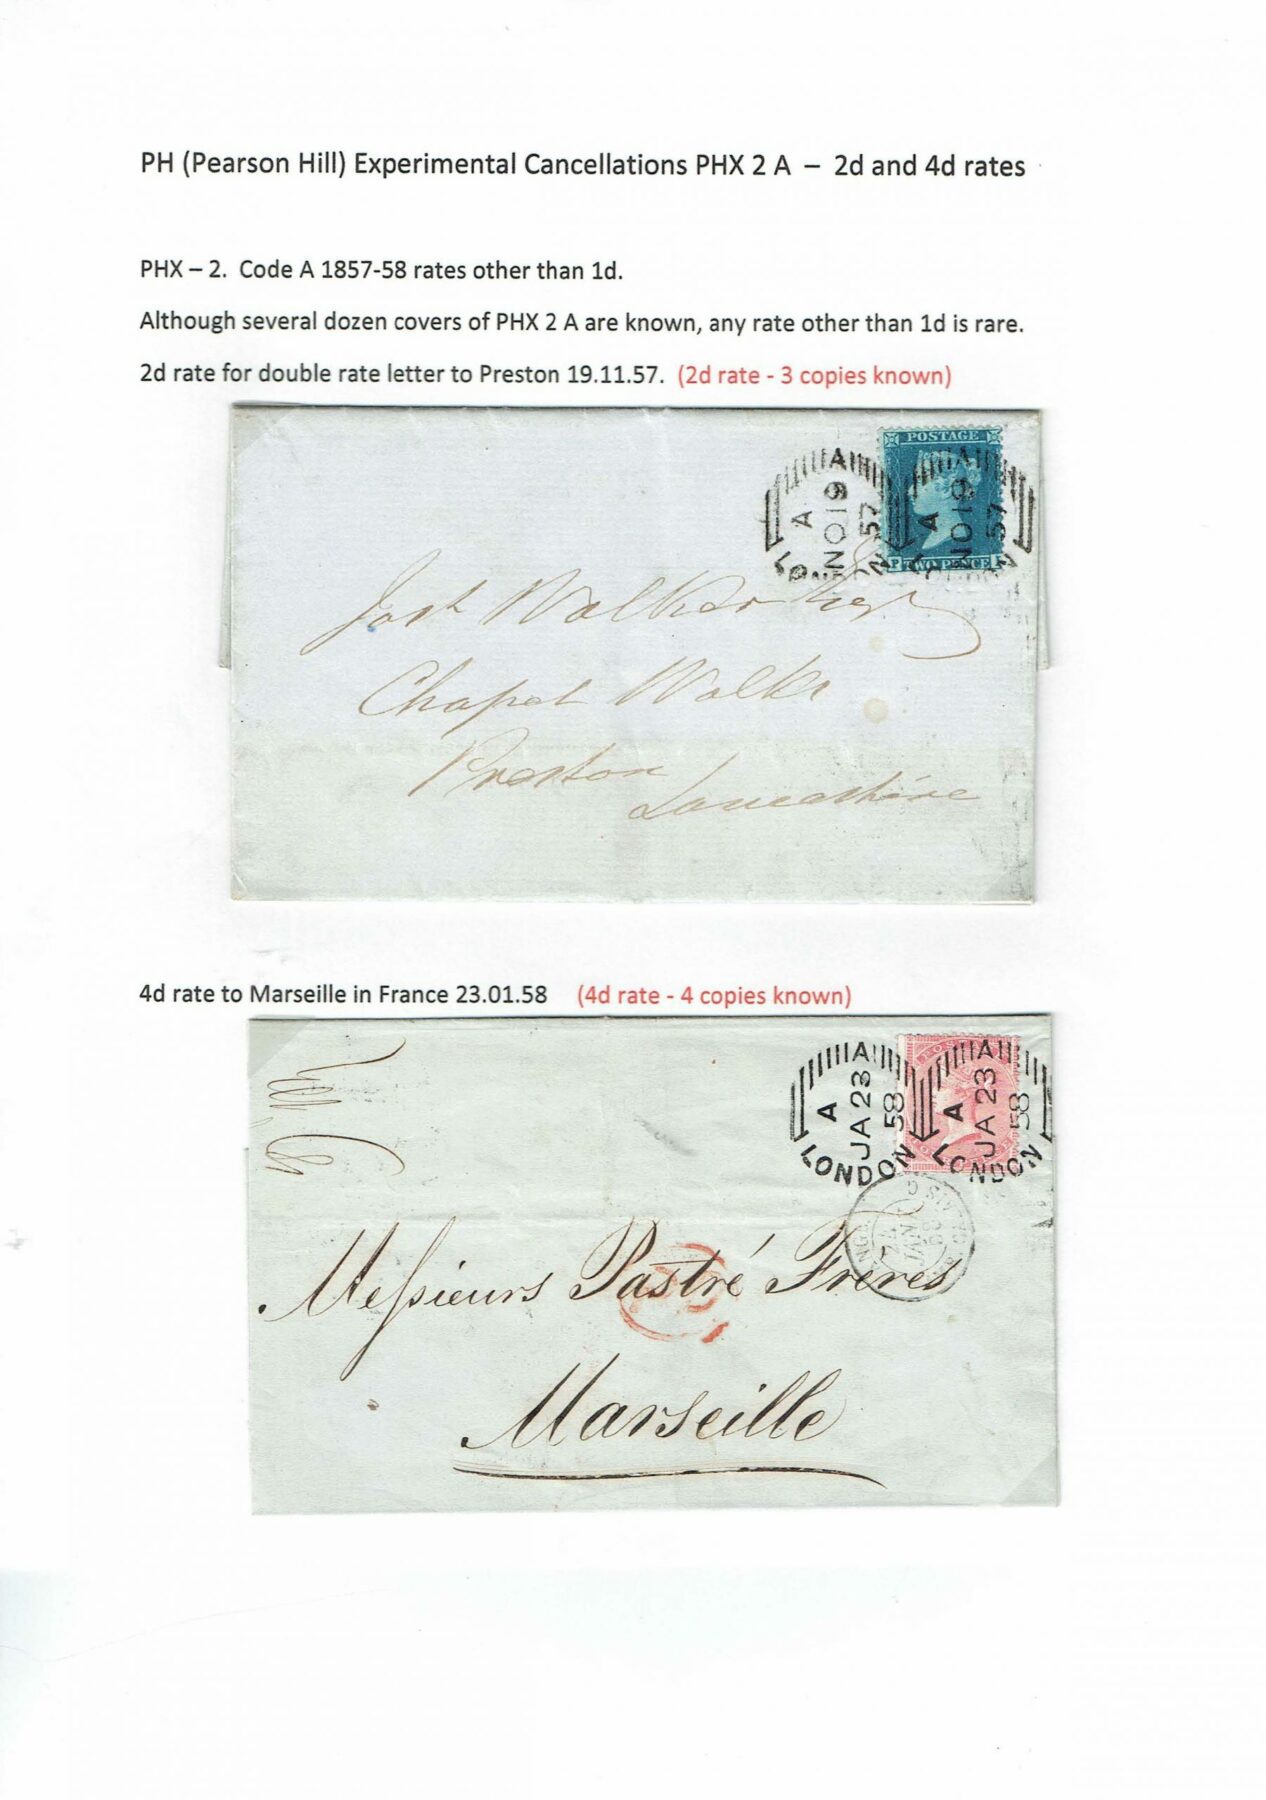 PH (Pearson Hill) Experimental Cancellations PHX 2 A – 2d and 4d rates
PHX – 2. Code A 1857-58 rates other than 1d.
Although several dozen covers of PHX 2 A are known, any rate other than 1d is rare.
2d rate for double rate letter to Preston 19.11.57. (2d rate - 3 copies known)
POSTAGE
A A
A NO 19 57 A NO 19 57
LONDON LONDON
P TWO PENCE
Walker Esq
Chapel Walks
Preston
Lancashire
4d rate to Marseille in France 23.01.58 (4d rate - 4 copies known)
A A
A JA 23 58 A JA 23 58
LONDON LONDON
24 JANV
Messieurs Pastré Frères
Marseille